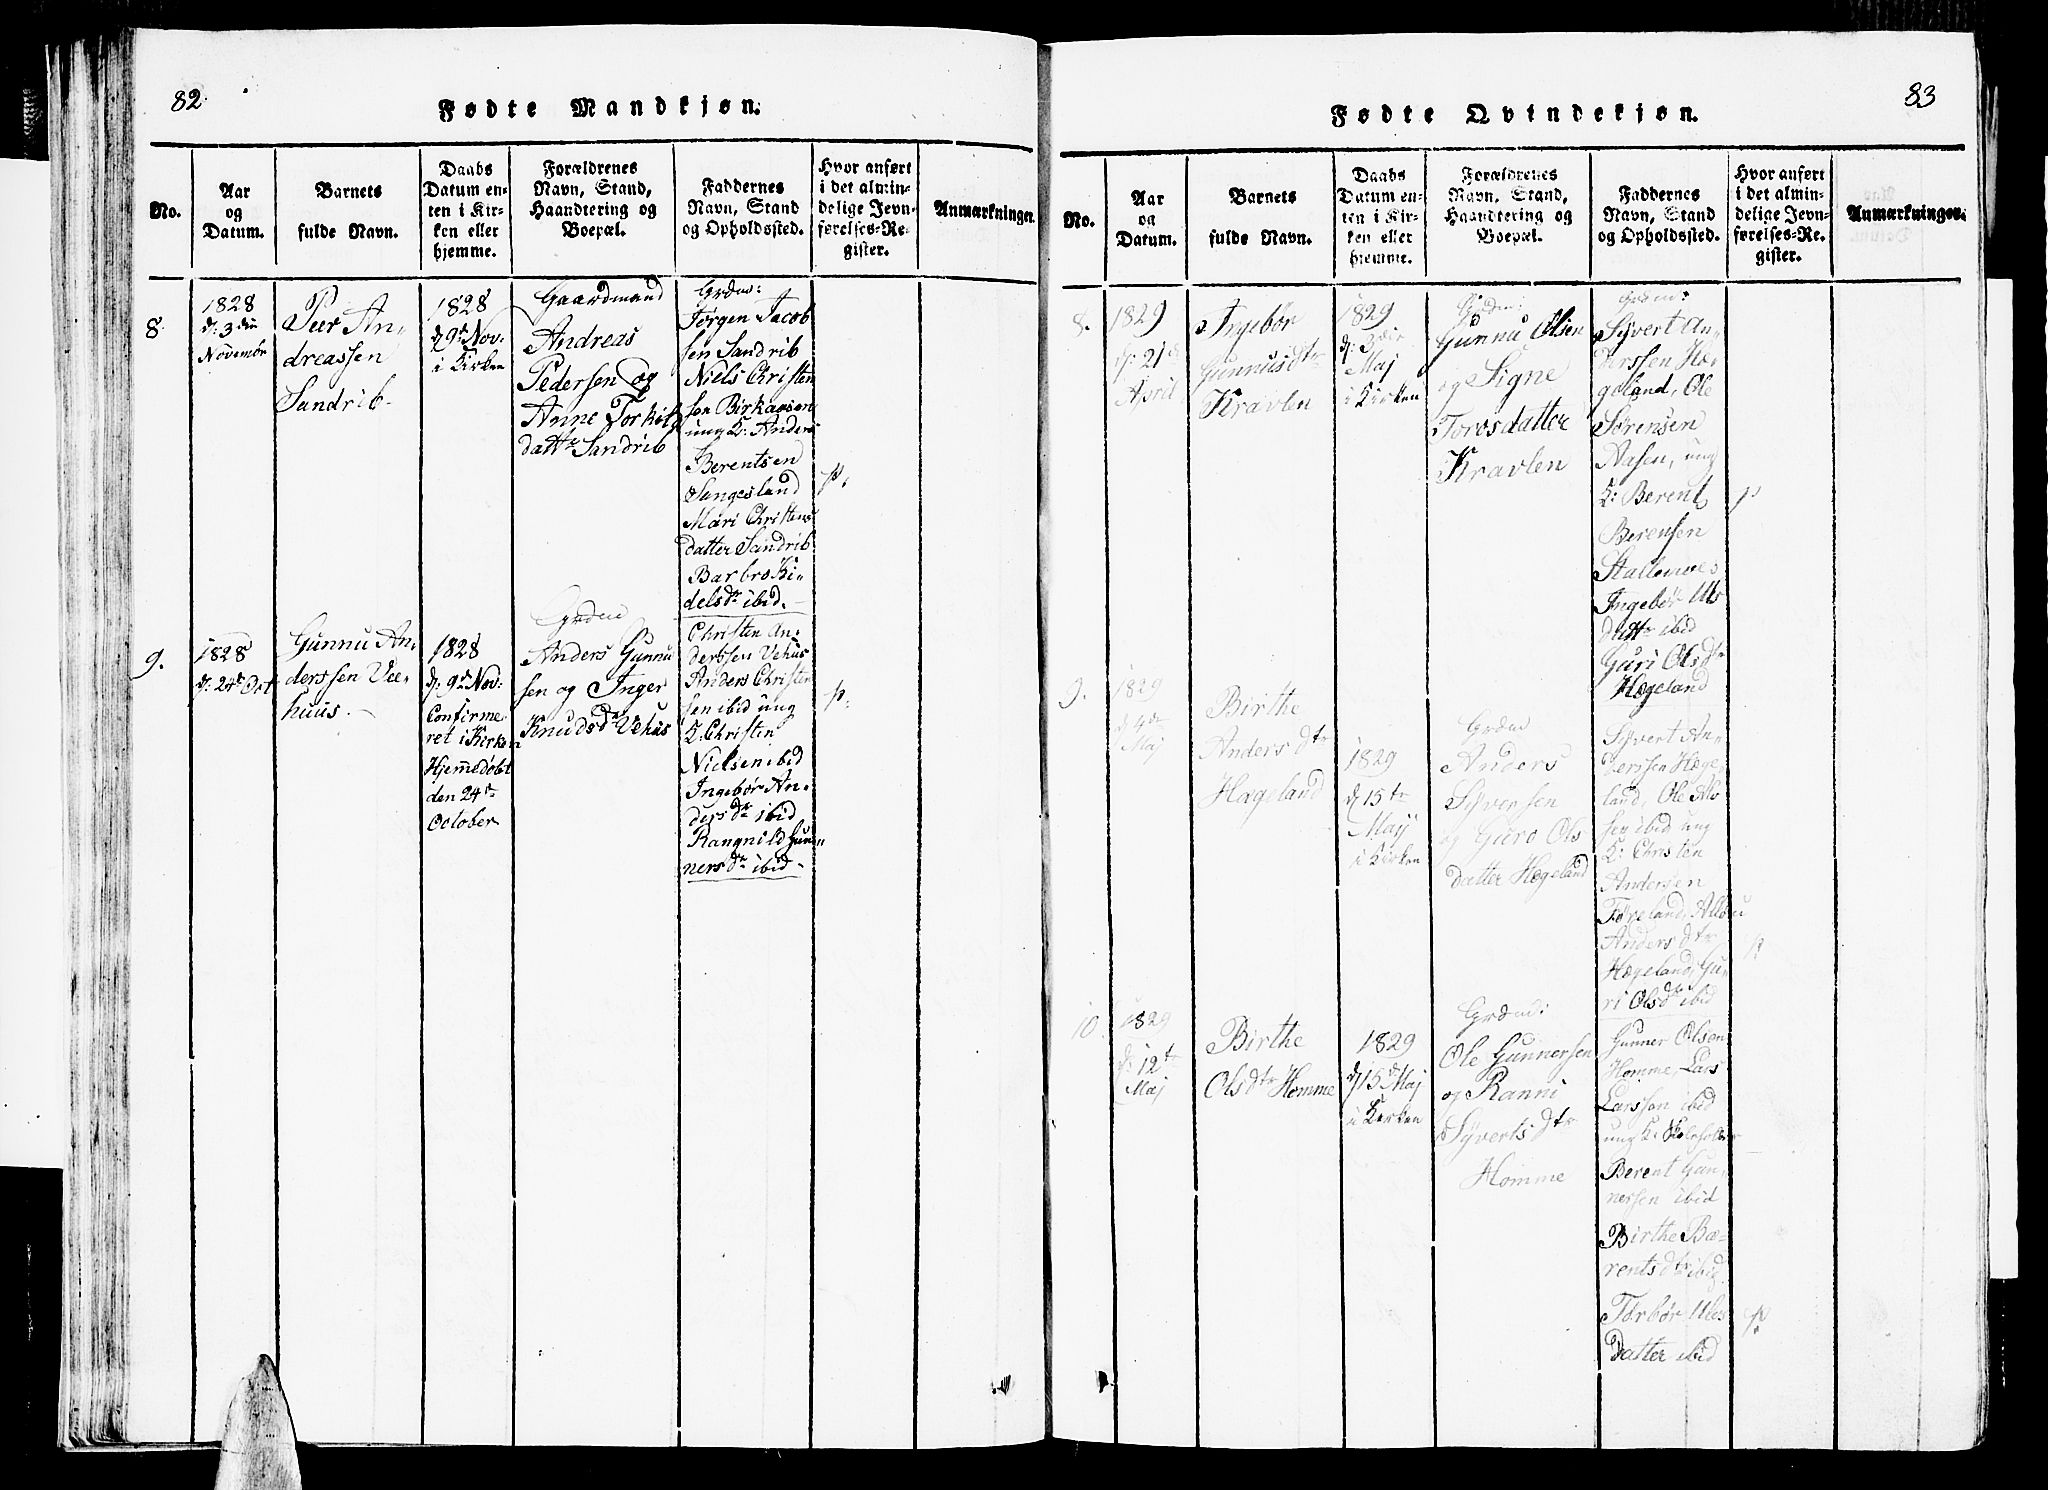 82.
Fødte Mandkjøn.
No.
Aar
og
Datum.
Barnets
fulde Navn.
Daabs
Datum en-
ten i Kir-
ken eller
hjemme.
Forældrenes
Navn, Stand,
Haandtering og
Boepæl.
Faddernes
Navn, Stand
og Opholdssted.
Hvor anført
i det almin-
delige Jevn-
førelses-Re-
gister.
Anmærkninger.
8
1828
d: 3die
Novembr
Peer An-
dreassen
Sandrib-
1828
d 9de Nov:
i Kirken
Gaardmand
Andreas
Pedersen og
Anne Torkild
dattr Sandrib
Grdm:
Jørgen Jacob
sen Sandrib
Niels Christen
sen Birkamoen
ung K: Anders
Berentsen
Sangesland
Mari Christens
datter Sandrib
Barbro Ki-
delsdr ibid.
p.
9.
1828
d: 24de Oct
Gunnu An-
derssen Vee-
huus.
1828
d: 9de Nov:
Confirme
ret i Kirken
Hjemmedøbt
den 24de
October
Grdm
Anders Gunnu
sen og Inger
Knudsdr Vehus
Christen An-
derssen Vehus
Anders Christen
sen ibid ung
K: Christen
Nielsen ibid
Ingebør An-
dersdr ibid
Rangnild Gun-
nersdr ibid.
p.
83
Fødte Qvindekjøn.
No.
Aar
og
Datum.
Barnets
fulde Navn.
Daabs
Datum en-
ten i Kir-
ken eller
hjemme.
Forældrenes
Navn, Stand,
Haandtering og
Boepæl.
Faddernes
Navn, Stand
og Opholdssted.
Hvor anført
i det almin-
delige Jevn-
førelses-Re-
gister.
Anmærkninger.
8.
1829
d: 21de
April
Ingebør
Gunnusdtr
Kravlen
1829
d: 3die
Maj
i Kirken
Grdm:
Gunnu Olsen
og Signe
Torosdatter
Kravlen
Grdm:
Syvert An-
derssen Hæ-
geland, Ole
Sørensen
Aasen, ung
K: Berent
Berensen
Stallemoes
Ingebør Uls
dattr ibid
Guri Olsdtr
Hægeland
p
9.
1829
d 4de
Maj
Birthe
Andersdtr
Hægeland
1829
d 15te
Maij
i Kirken
Grdm
Anders
Syversen
og Guro Ols
datter Hægeland
Syvert An-
derssen Hæge-
land, Ole Alv
sen ibid ung
K: Christen
Andersen
Føreland,
Andersdtr
Hægeland, Gu-
ri Olsdr ibid
p
10
1829
d: 12te
Maj
Birthe
Olsdtr Homme
1829
d 15de Maj
i Kirken
Grdm:
Ole Gunnersen
og Ranni
Syvertsdtr
Homme
Gunner Olsen
Homme, Lars
Larssen ibid
ung K:
Berent Gun-
nersen ibid
Birthe Bæ-
rentsdtr ibid
Torbør Uls
Datter ibid
p.